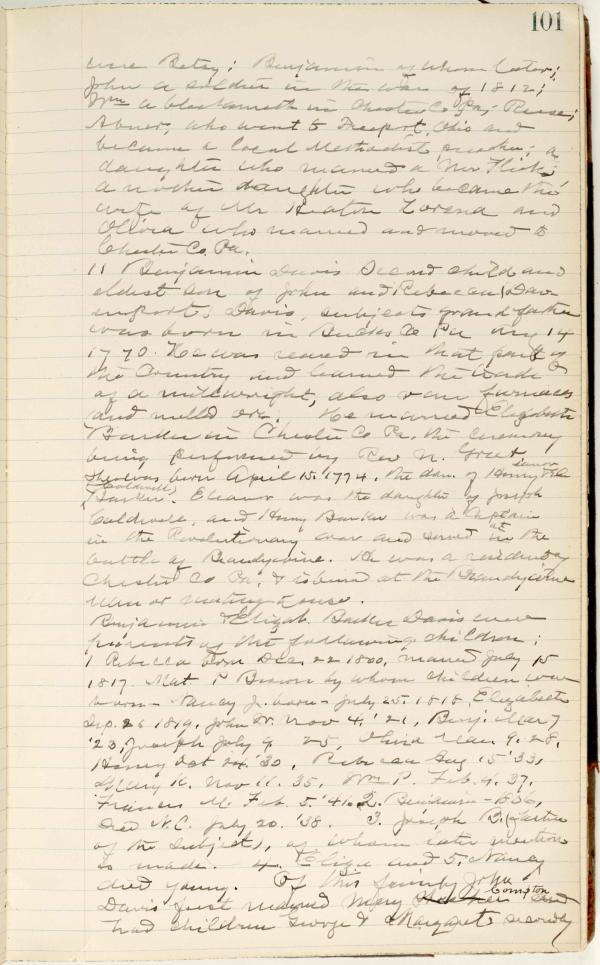 101
were Betsy; Benjamin of whom later;
John a soldier in the war of 1812;
Wm a blacksmith in Chester Co Pa; Reese;
Abner, who went to Freeport, Ohio and
became a local Methodist preacher; a
daughter who married a Mr
another daughter who became the
wife of Mr Heaton Lorena and
Olivia who married and moved to
Chester Co. Pa.
11 Benjamin Davis Second child and
eldest son of John and Rebecca (Dav
enport) Davis, subjects grandfather
was born in Bucks Co Pa Aug 14
1770. He was reared in that part of
the Country and learned the trade
of a millwright, also ran furnaces
and melted ore. He married Elizabeth
Barker in Chester Co Pa. the ceremony
being performed by Rev N.
She was born April 15. 1774. the dau. of Henry and Eleanor
(Caldwell)
Barker. Eleanor was the daughter of Joseph
Caldwell, and Henry Barker was a Captain
in the Revolutionary war and served in the
battle of Brandywine. He was a resident of
Chester Co Pa, & is buried at the Brandywine
Manor meeting house.
Benjamin & Elizab. Barker Davis were
parents of the following children:
1 Rebecca born Dec 22 1800, married July 15
1817. Mat. P Brown by whom children were
born - Nancy J. born - July 25. 1818, Elizabeth
Sep. 26 1819, John W. Nov 4, '21, Benj. Mar 7
'23, Joseph July 9 25, Mar 9. 28,
Henry Oct 24. '30, Rebecca Aug 15 '33,
Mary K. Nov 11. 35, Wm P. Feb. 4. 37.
Francis M. Feb. 5. '41. 2. Benjamin - 1806,
Died N.C. July 20. '38. 3. Joseph B. (father
of the subject), of whom later mention
is made. 4. Eliza and 5. Nancy
died young. Of this family John
Davis first married Mary Compton and
had children George & Margaret, secondly